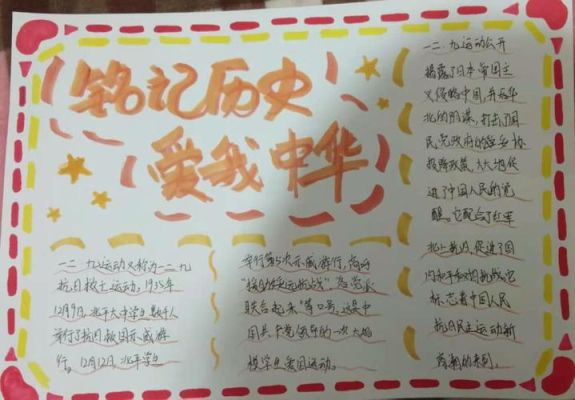 铭记历史
爱我中华
一二·九运动又称为一二九
抗日救亡运动，1935年
12月9日，北平大中学生数千人
举行了抗日救国示威游
行，12月12日，北平学生
举行第5次示威游行，高呼
"援助绥远抗战""各党派
联合起来"等口号，这是中
国共产党领导的一次大规
模学生爱国运动。
一二·九运动公开
揭露了日本帝国主
义侵略中国，并吞华
北的阴谋，打击了国
民党政府的妥协
投降政策，大大地促
进了中国人民的觉
醒。它配合了红军
北上抗日，促进了国
内和平和对日抗战，它
标志着中国人民
抗日民主运动新
高潮的来到。